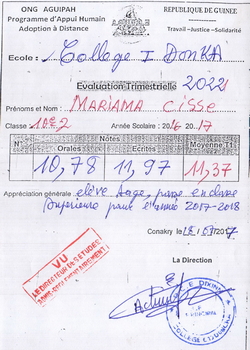 ONG AGUIPAH
Programme d'Appui Humain
Adoption à Distance
REPUBLIQUE DE GUINEE
Travail –Justice –Solidarité
Ecole : College I Donka
Evaluation Trimestrielle 2022
Prénoms et Nom : MARIAMA Cisse
Classe 10e2 Année Scolaire : 2016 2017
N° Notes Moyenne T1
Orales Ecrites
10,78 11,97 11,37
Appréciation générale : élève sage, passe en classe
Supérieure pour l'année 2017-2018
Conakry le 2017
VU
LE DIRECTEUR DES ETUDES
La Direction